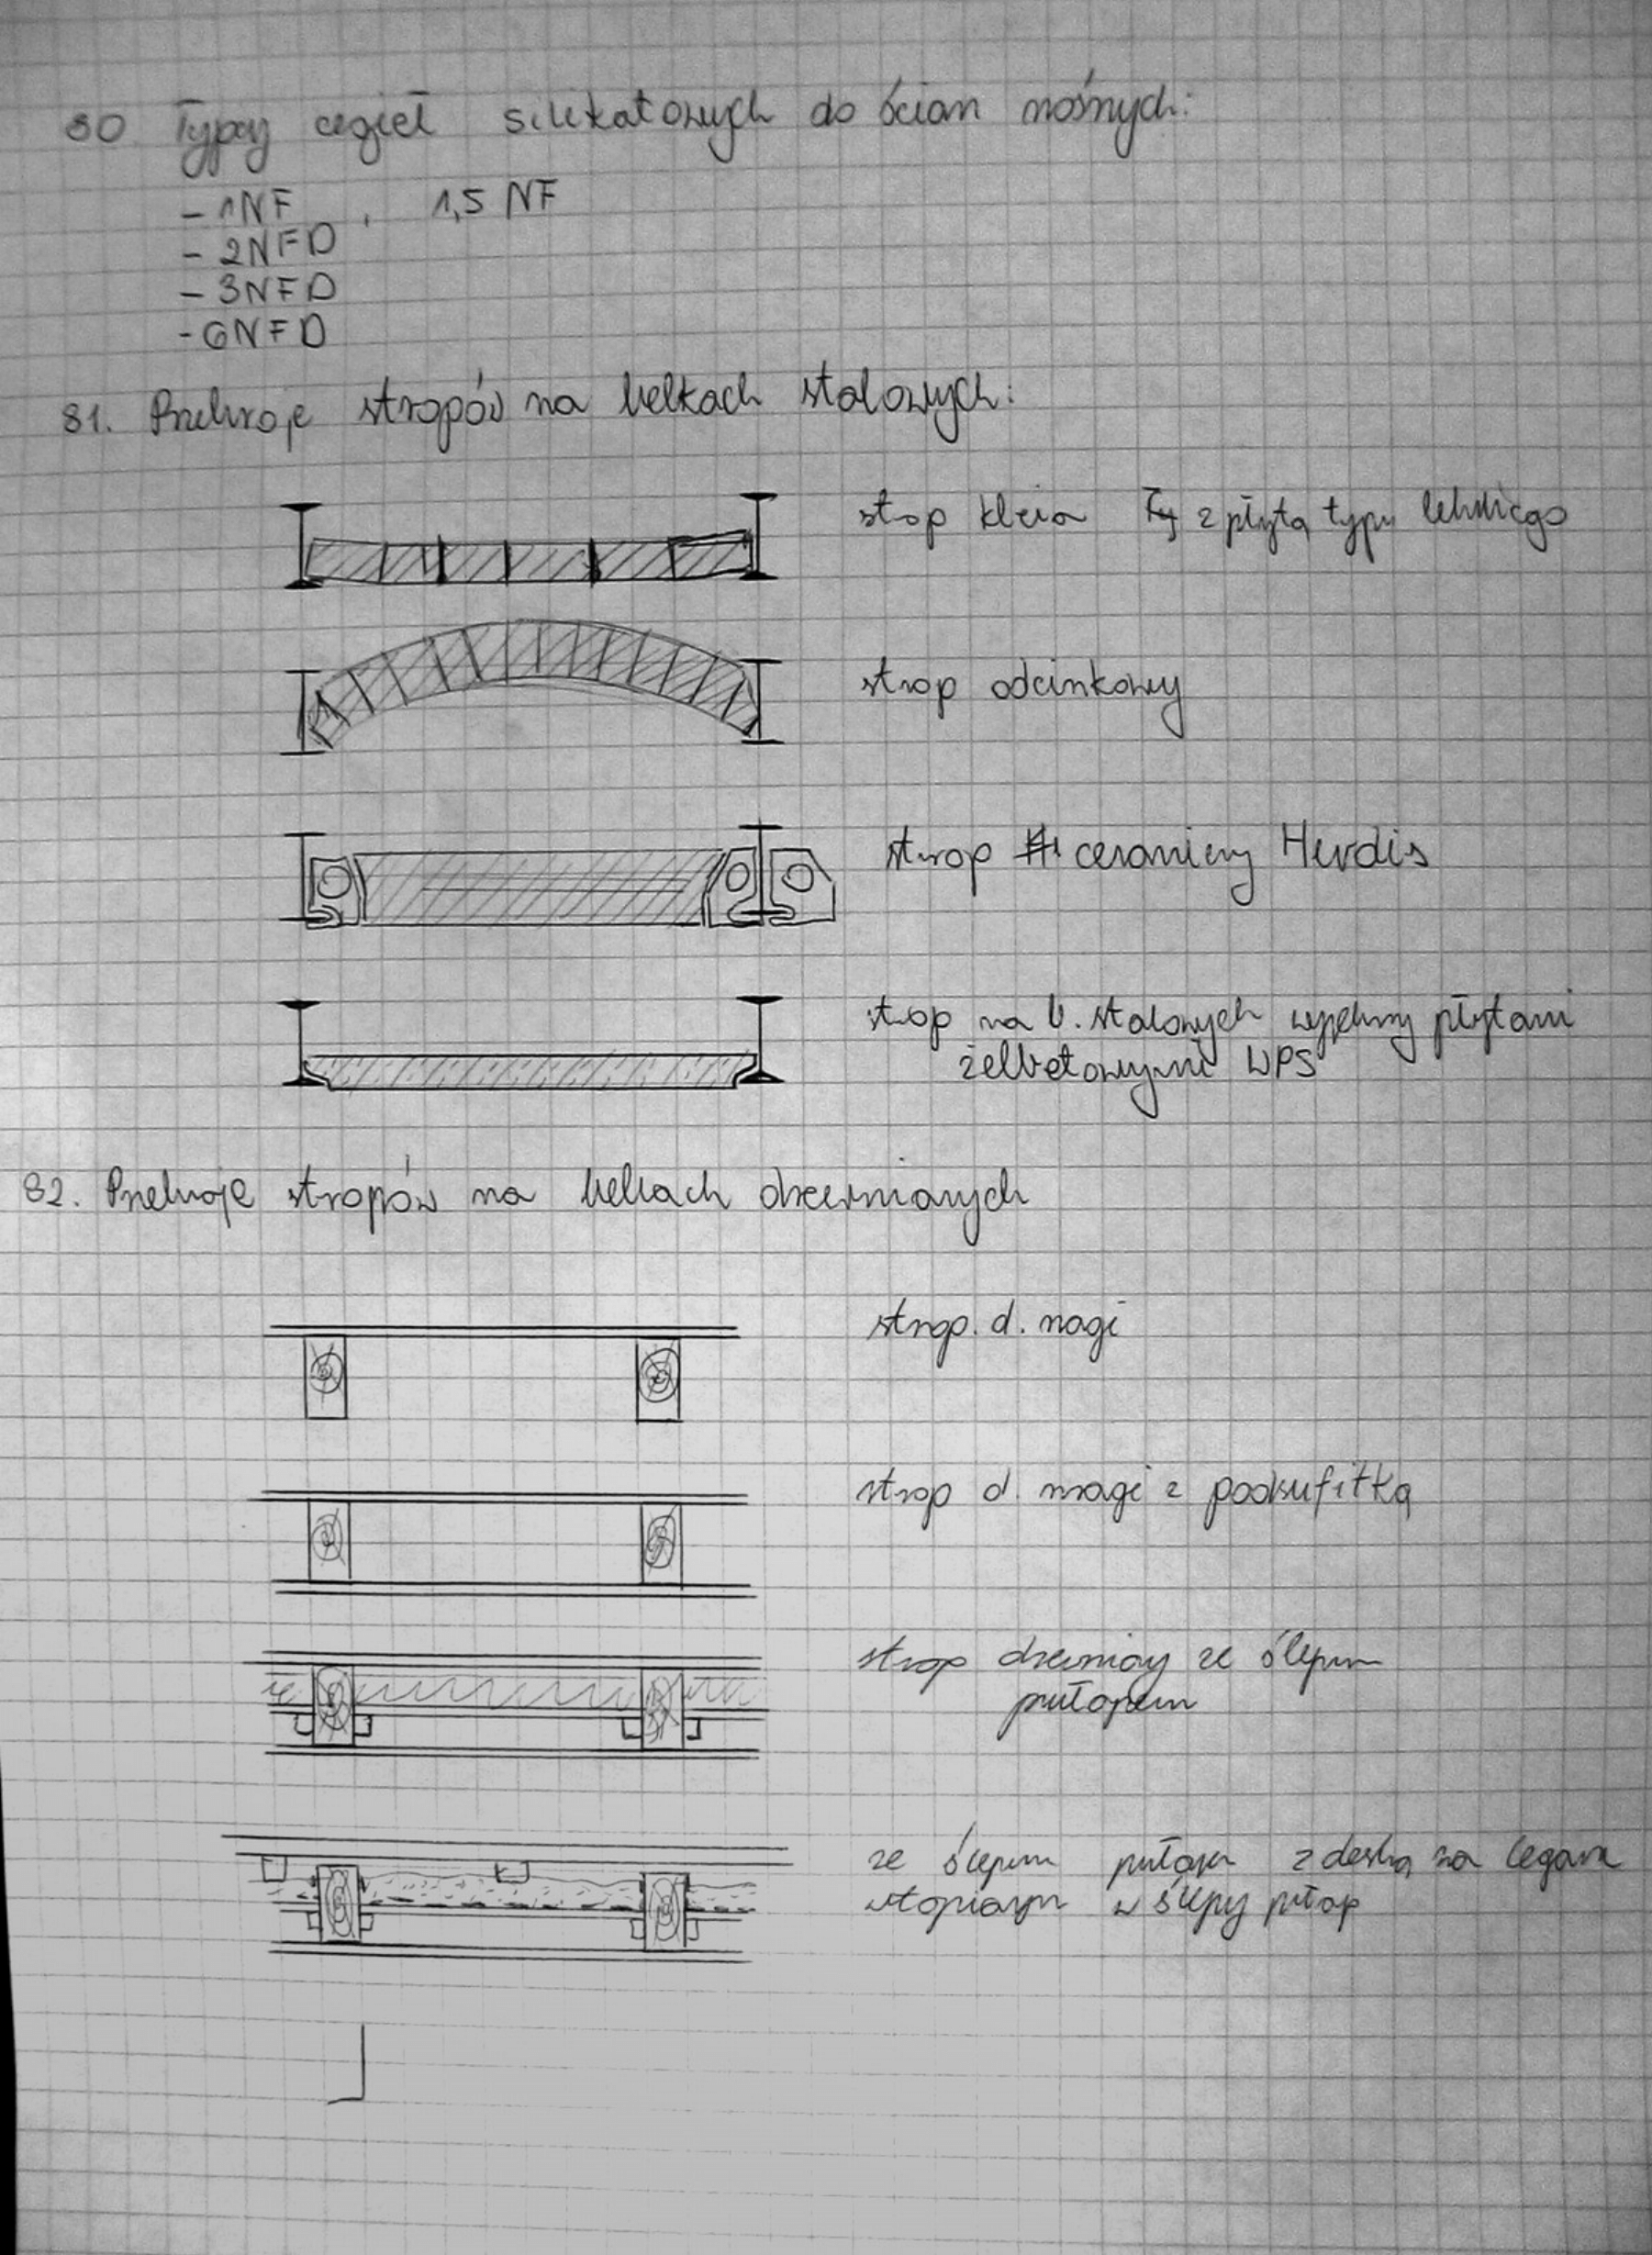 80. Typy cegieł silikatowych do ścian nośnych:
- 1NF , 1,5 NF
- 2NFD
- 3NFD
- 6NFD
81. Przekroje stropów na belkach stalowych:
stop kleina z płytą typu lekkiego
strop odcinkowy
strop ceramiczny Herdis
strop na b. stalowych wypełniony płytami
żelbetowymi WPS
82. Przekroje stropów na belkach drewnianych
strop. d. nagi
strop d. nagi z podsufitką
strop drewniany ze ślepym
pułapem
ze ślepym pułapem z deską na legarze
wtopionym w ślepy pułap